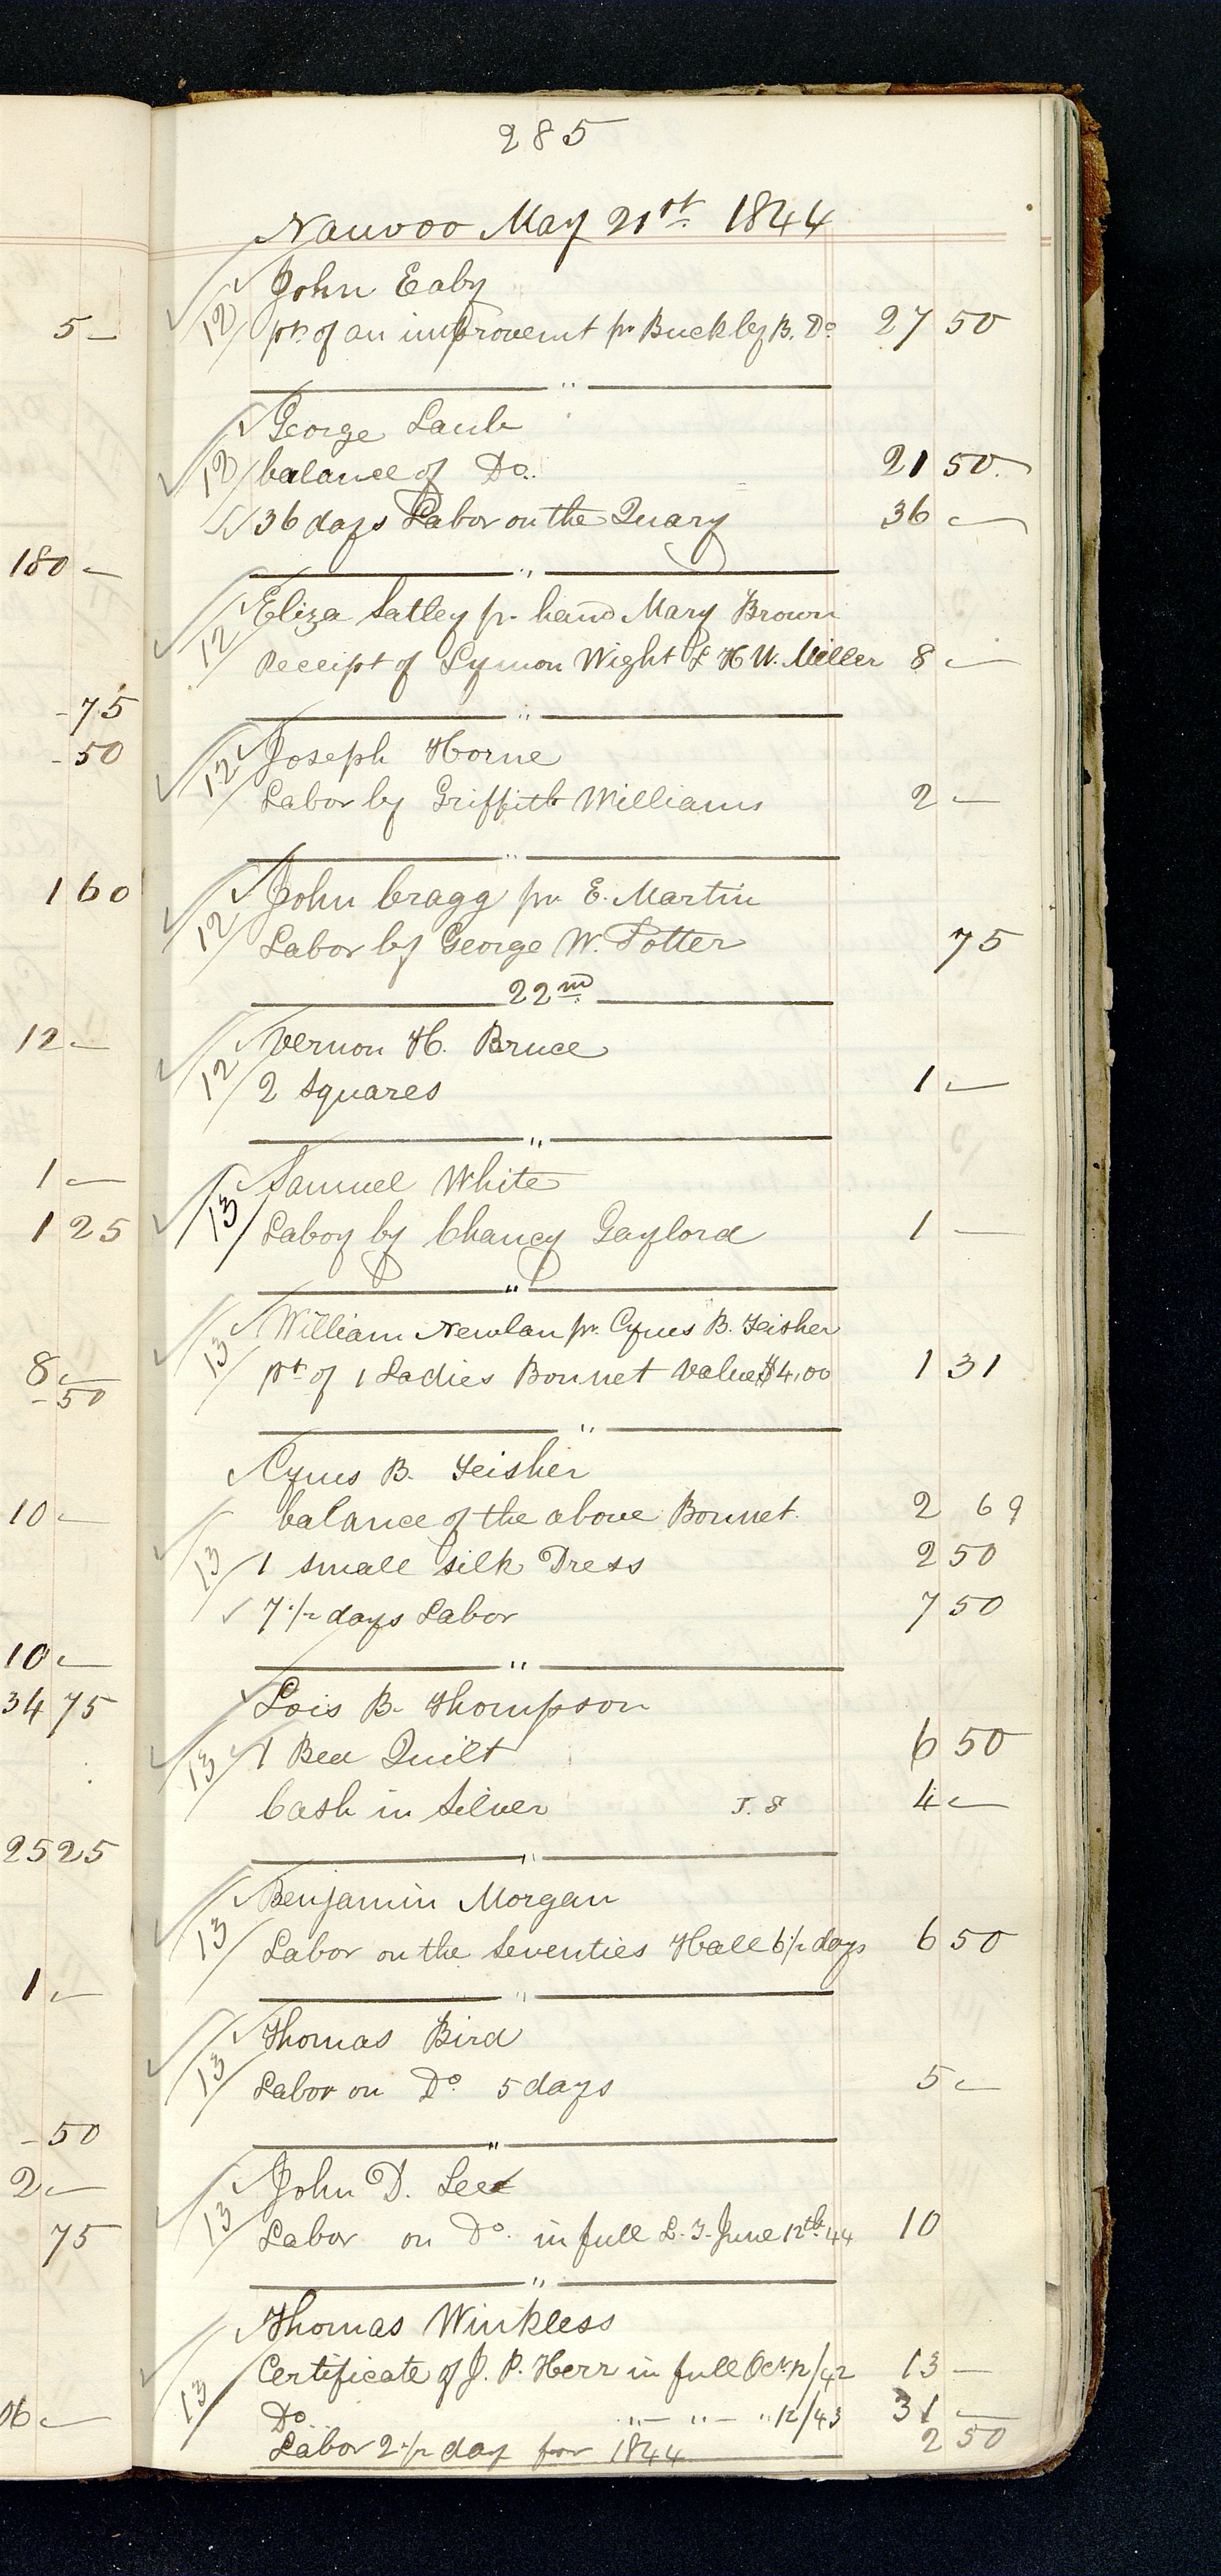 285
Nauvoo May 21st 1844
John Eaby
12 pt of an improvemt pr Buckley B. Do 27 50
"
George Laub
12 balance of Do. 21 50
36 days Labor on the Quary 36 —
"
Eliza Satley pr hand Mary Brown
12 Receipt of Lymon Wight & H W. Miller 8 —
"
Joseph Horne
12 Labor by Griffith Williams 2 —
"
John Cragg pr E. Martin
12 Labor by George W. Potter 75
22nd
Vernon H. Bruce
12 2 Squares 1 —
"
Samuel White
13 Labor by Chancy Gaylord 1 —
"
William Newlan pr Cyrus B. Feisher
13 pt of 1 Ladies Bonnet Value $4,00 1 31
"
Cyrus B. Feisher
balance of the above Bonnet 2 69
13 1 small silk Dress 2 50
7 1/2 days Labor 7 50
"
Lois B. Thompson
13 1 Bed Quilt 6 50
Cash in Silver 4 —
"
Benjamin Morgan
13 Labor on the Seventies Hall 6 1/2 days 6 50
"
Thomas Bird
13 Labor on Do 5 days 5 —
"
John D. Lee
13 Labor on Do. in full June 12th 44 10
"
Thomas Winkless
Certificate of J. P. Herr in full Oct 12/42 13 —
13 Do " — " — " 12/43 31 —
Labor 2 1/2 day for 1844 2 50
5 —
180 —
- 75
- 50
1 60
12 —
1 —
1 25
8 —
- 50
10 —
10 —
34 75
25 25
1 —
- 50
2 —
75
06 —